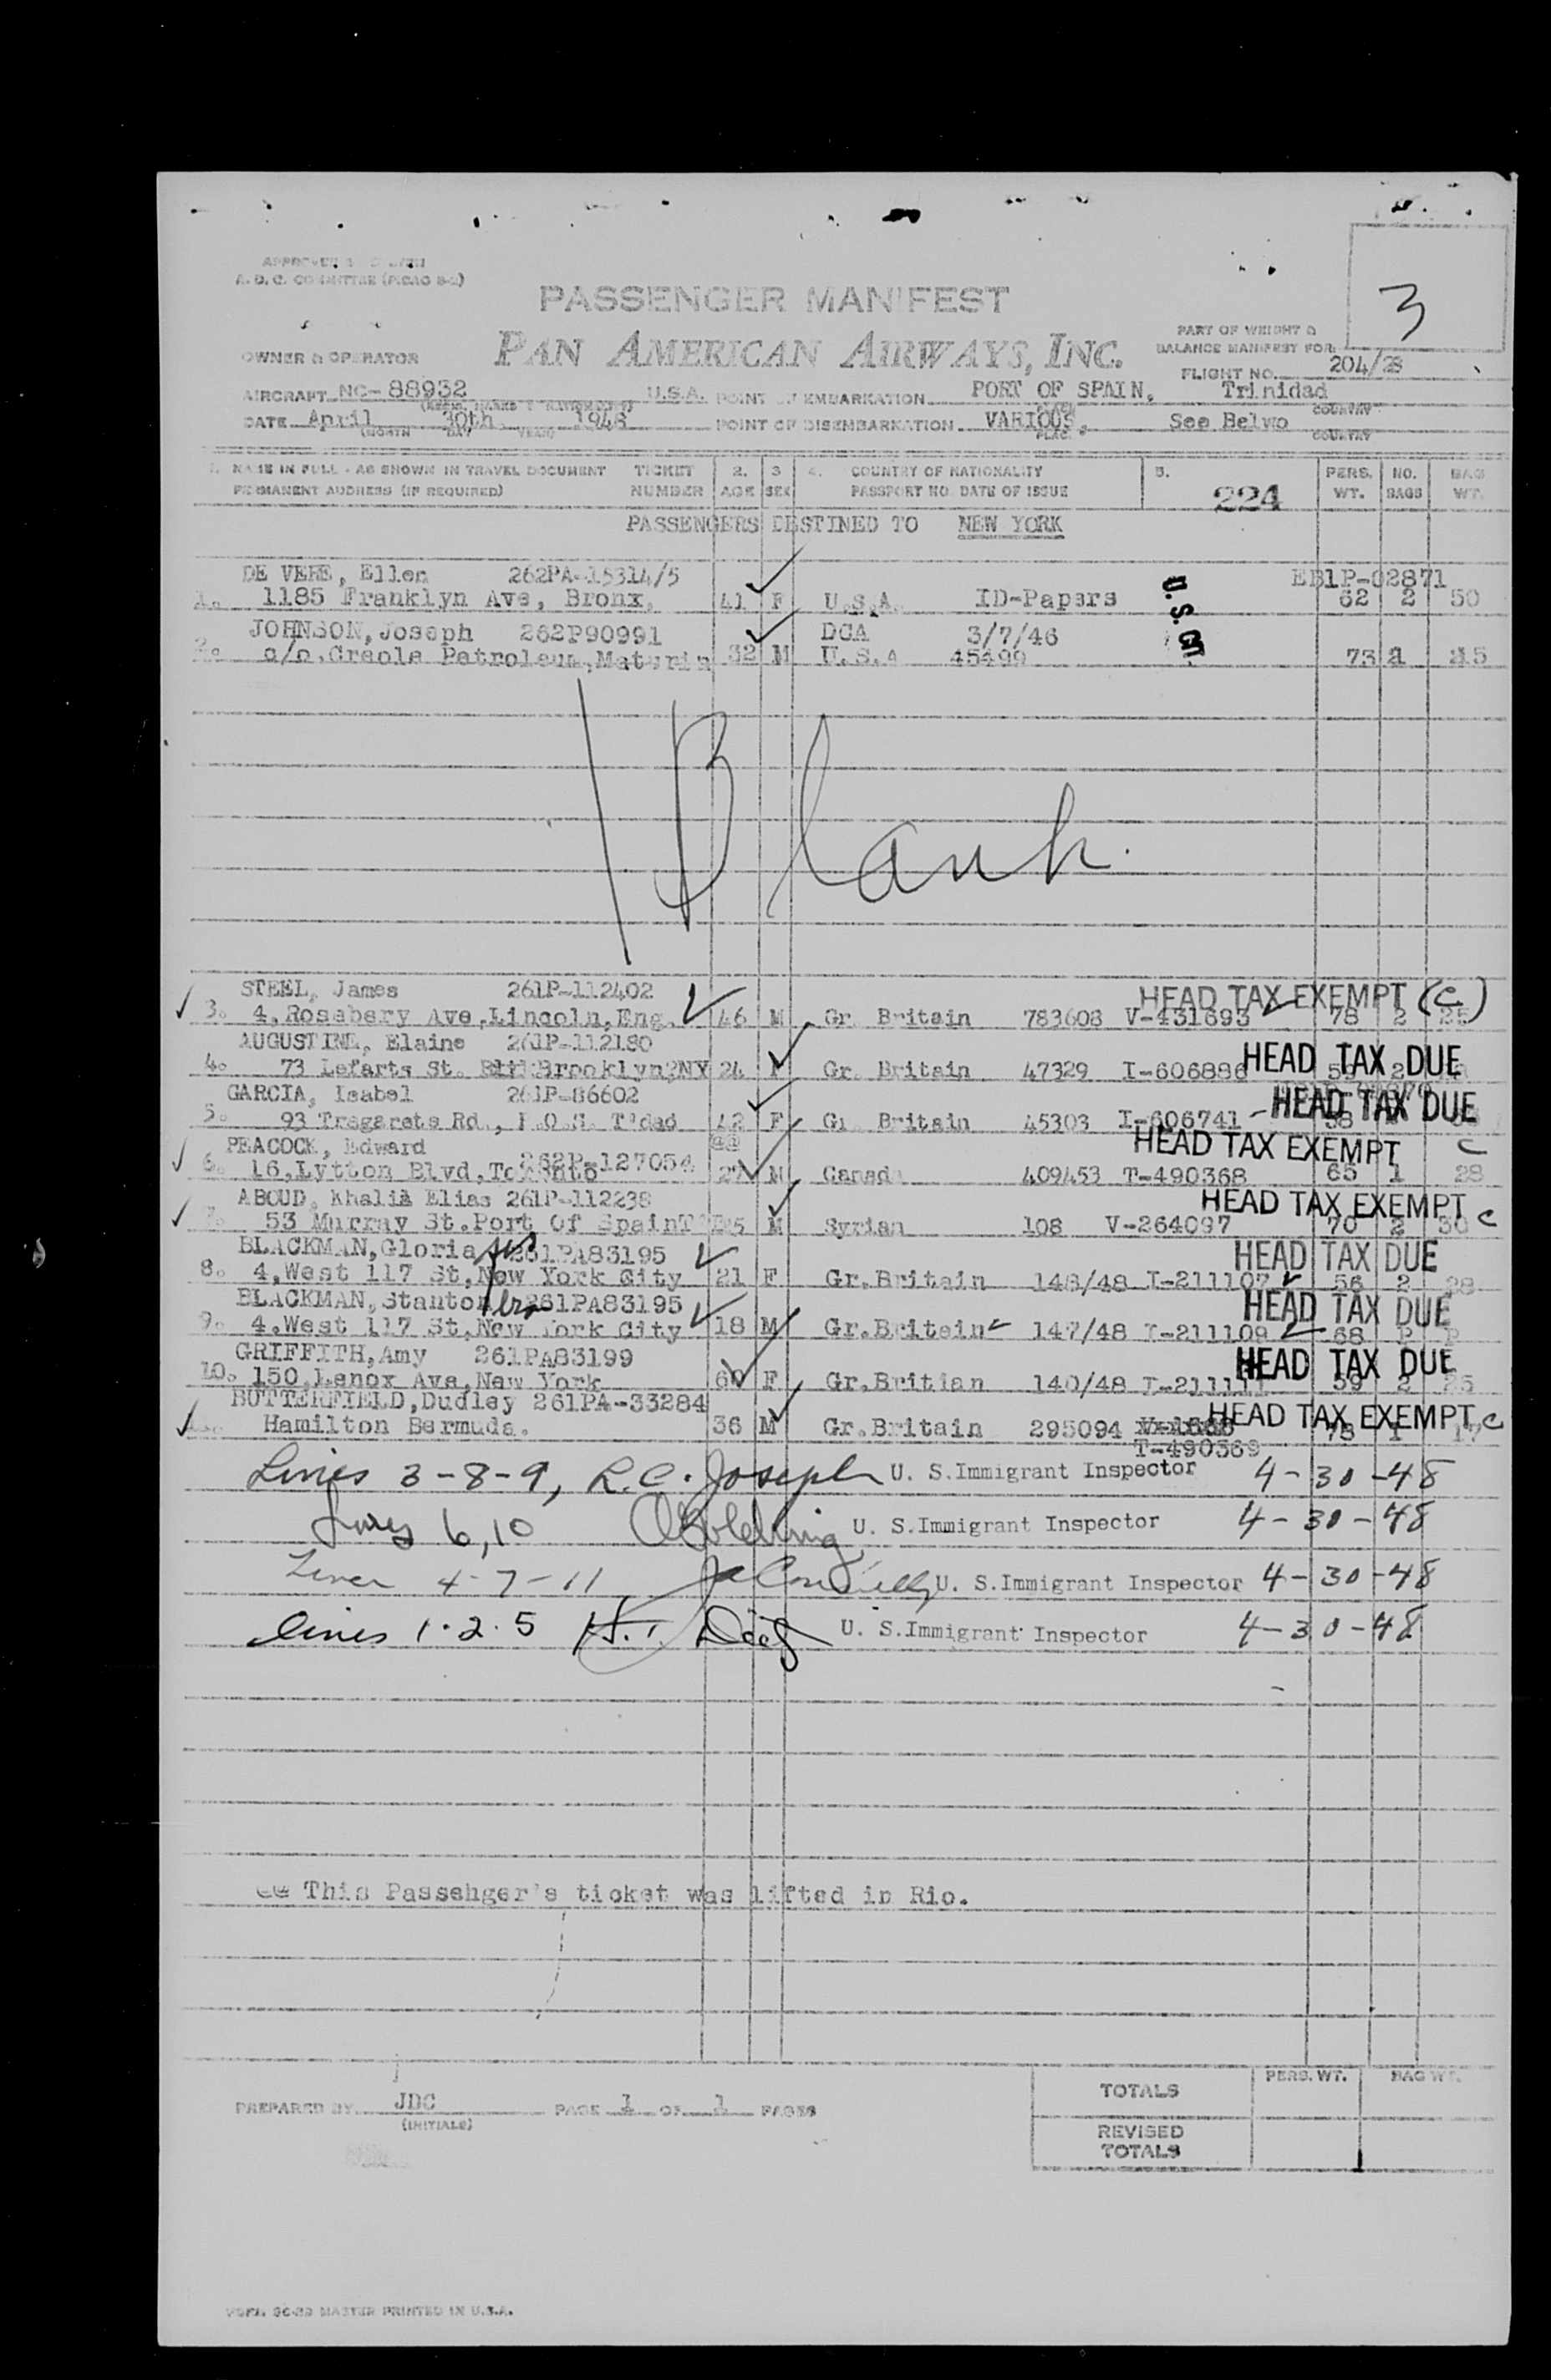 A. D. C. COMMITTEE (PICAO
3
PASSENGER MANIFEST
PAN AMERICAN AIRWAYS, INC.
PART OF WEIGHT &
BALANCE MANIFEST FOR
OWNER & OPERATOR
FLIGHT NO. 204/28
AIRCRAFT NC-88932 U.S.A. POINT OF EMBARKATION PORT OF SPAIN, Trinidad
(REGIS. MARKS & NATIONALITY) PLACE COUNTRY
DATE April 30th 1948 POINT OF DISEMBARKATION VARIOUS, See Belwo
(MONTH DAY YEAR) PLACE COUNTRY
1. NAME IN FULL - AS SHOWN IN TRAVEL DOCUMENT TICKET 2. 3 4. COUNTRY OF NATIONALITY 5. PERS. NO. BAG
PERMANENT ADDRESS (IF REQUIRED) NUMBER AGE SEX PASSPORT NO. DATE OF ISSUE 224 WT. BAGS WT.
PASSENGERS DESTINED TO NEW YORK
DE VERE, Ellen 262PA-15314/5 EB1P-02871
1. 1185 Franklyn Ave, Bronx, 41 F U.S.A. ID-Papers U.S. 62 2 50
JOHNSON, Joseph 262P90991 DGA 3/7/46
2. c/o, Creole Petroleum, Maturin 32 M U.S.A 45499 73
Blank.
STEEL, James 261P-112402 HEAD TAX EXEMPT (C)
3. 4, Rosebery Ave, Lincoln, Eng. 46 M Gr. Britain 783608 V-431693 78 2 25
AUGUSTINE, Elaine 261P-112180 HEAD TAX DUE
4. 73 Lefarts St. Brooklyn, NY 24 F Gr. Britain 47329 I-606886
GARCIA, Isabel 261P-86602 HEAD TAX DUE
5. 93 Tragarete Rd., P.O.S. T'dad 42 F Gr Britain 45303 I-606741
PEACOCK, Edward @@ HEAD TAX EXEMPT C
262P-127054
6. 16, Lytton Blvd, Toronto 27 M Canada 409453 T-490368 65 1 28
ABOUD, Khalil Elias 261P-112238 HEAD TAX EXEMPT C
7. 53 Murray St. Port Of Spain M Syrian 108 V-264097 70 2 30
BLACKMAN, Gloria sis 261PA83195 HEAD TAX DUE
8. 4, West 117 St, New York City 21 F Gr. Britain 148/48 I-211107 56 2 28
BLACKMAN, Stanton bro 261PA83195 HEAD TAX DUE
9. 4, West 117 St, New York City 18 M Gr. Britain 147/48 I-211109 68 P P
GRIFFITH, Amy 261PA83199 HEAD TAX DUE
10. 150, Lenox Ave, New York 60 F Gr. Britian 140/48 59 2 25
BUTTERFIELD, Dudley 261PA-33284 HEAD TAX EXEMPT C
Hamilton Bermuda. 36 M Gr. Britain 295094 1 17
T-490369
Lines 3-8-9, R.C. Joseph U. S. Immigrant Inspector 4-30-48
Lines 6,10 U. S. Immigrant Inspector 4-30-48
Lines 4-7-11 U. S. Immigrant Inspector 4-30-48
Lines 1.2.5 U. S. Immigrant Inspector 4-30-48
@@ This Passehger's ticket was lifted in Rio.
PERS. WT. BAG WT.
TOTALS
PREPARED BY JDC PAGE 1 OF 1 PAGES
(INITIALS)
REVISED
TOTALS
MASTER PRINTED IN U.S.A.